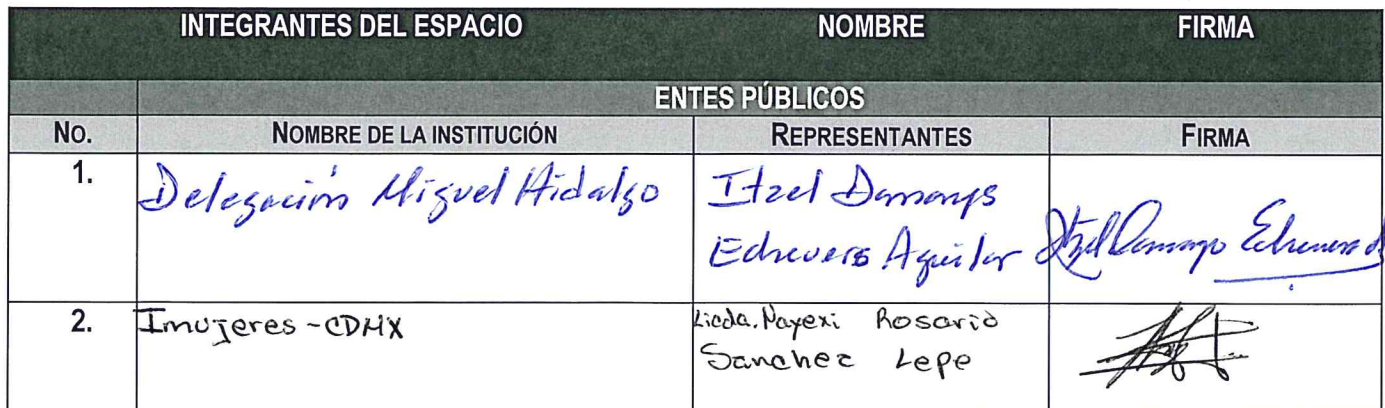 INTEGRANTES DEL ESPACIO NOMBRE FIRMA
ENTES PÚBLICOS
No. NOMBRE DE LA INSTITUCIÓN REPRESENTANTES FIRMA
1. Delegación Miguel Hidalgo Itzel Damarys
Echevers Aguilar
2. Imujeres-CDMX Licda. Nayexi Rosario
Sanchez Lepe